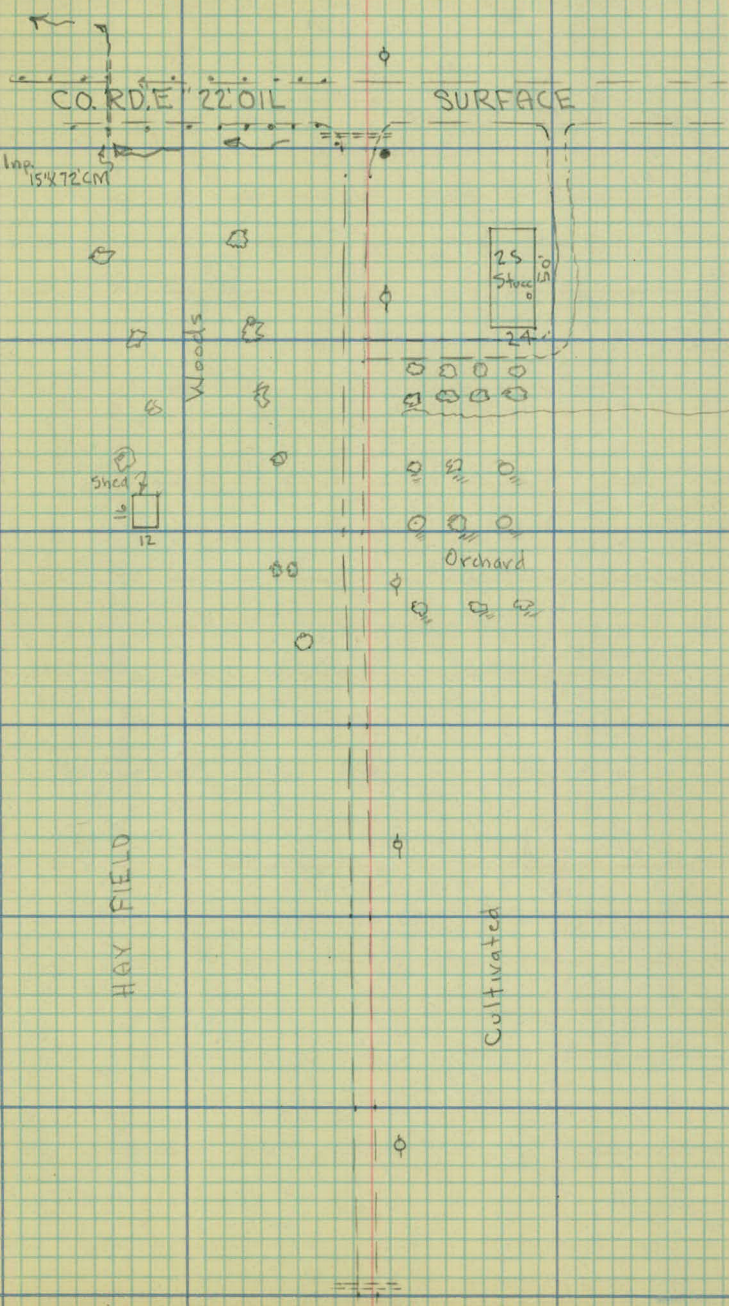 CO. RD. E 22' OIL SURFACE
Inp.
15"X72'CM
2S
Stucco
50
24
Woods
Shed
16
12
Orchard
HAY FIELD
Cultivated